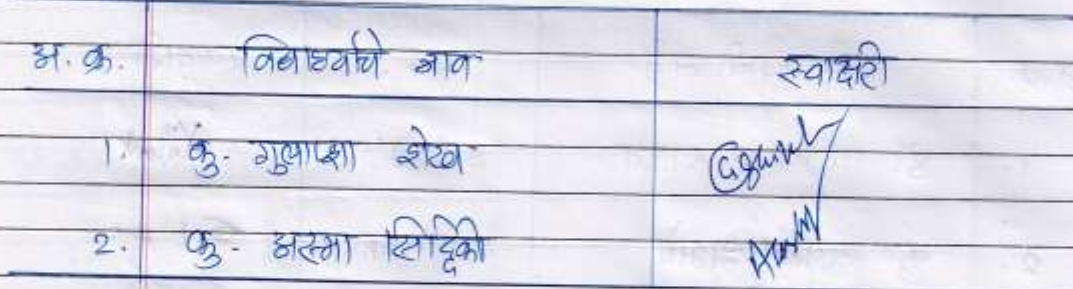 अ. क्र. विद्यार्थ्याचे नाव स्वाक्षरी
1. कु. गुलाप्शा शेख
2. कु. अस्मा सिद्दिकी